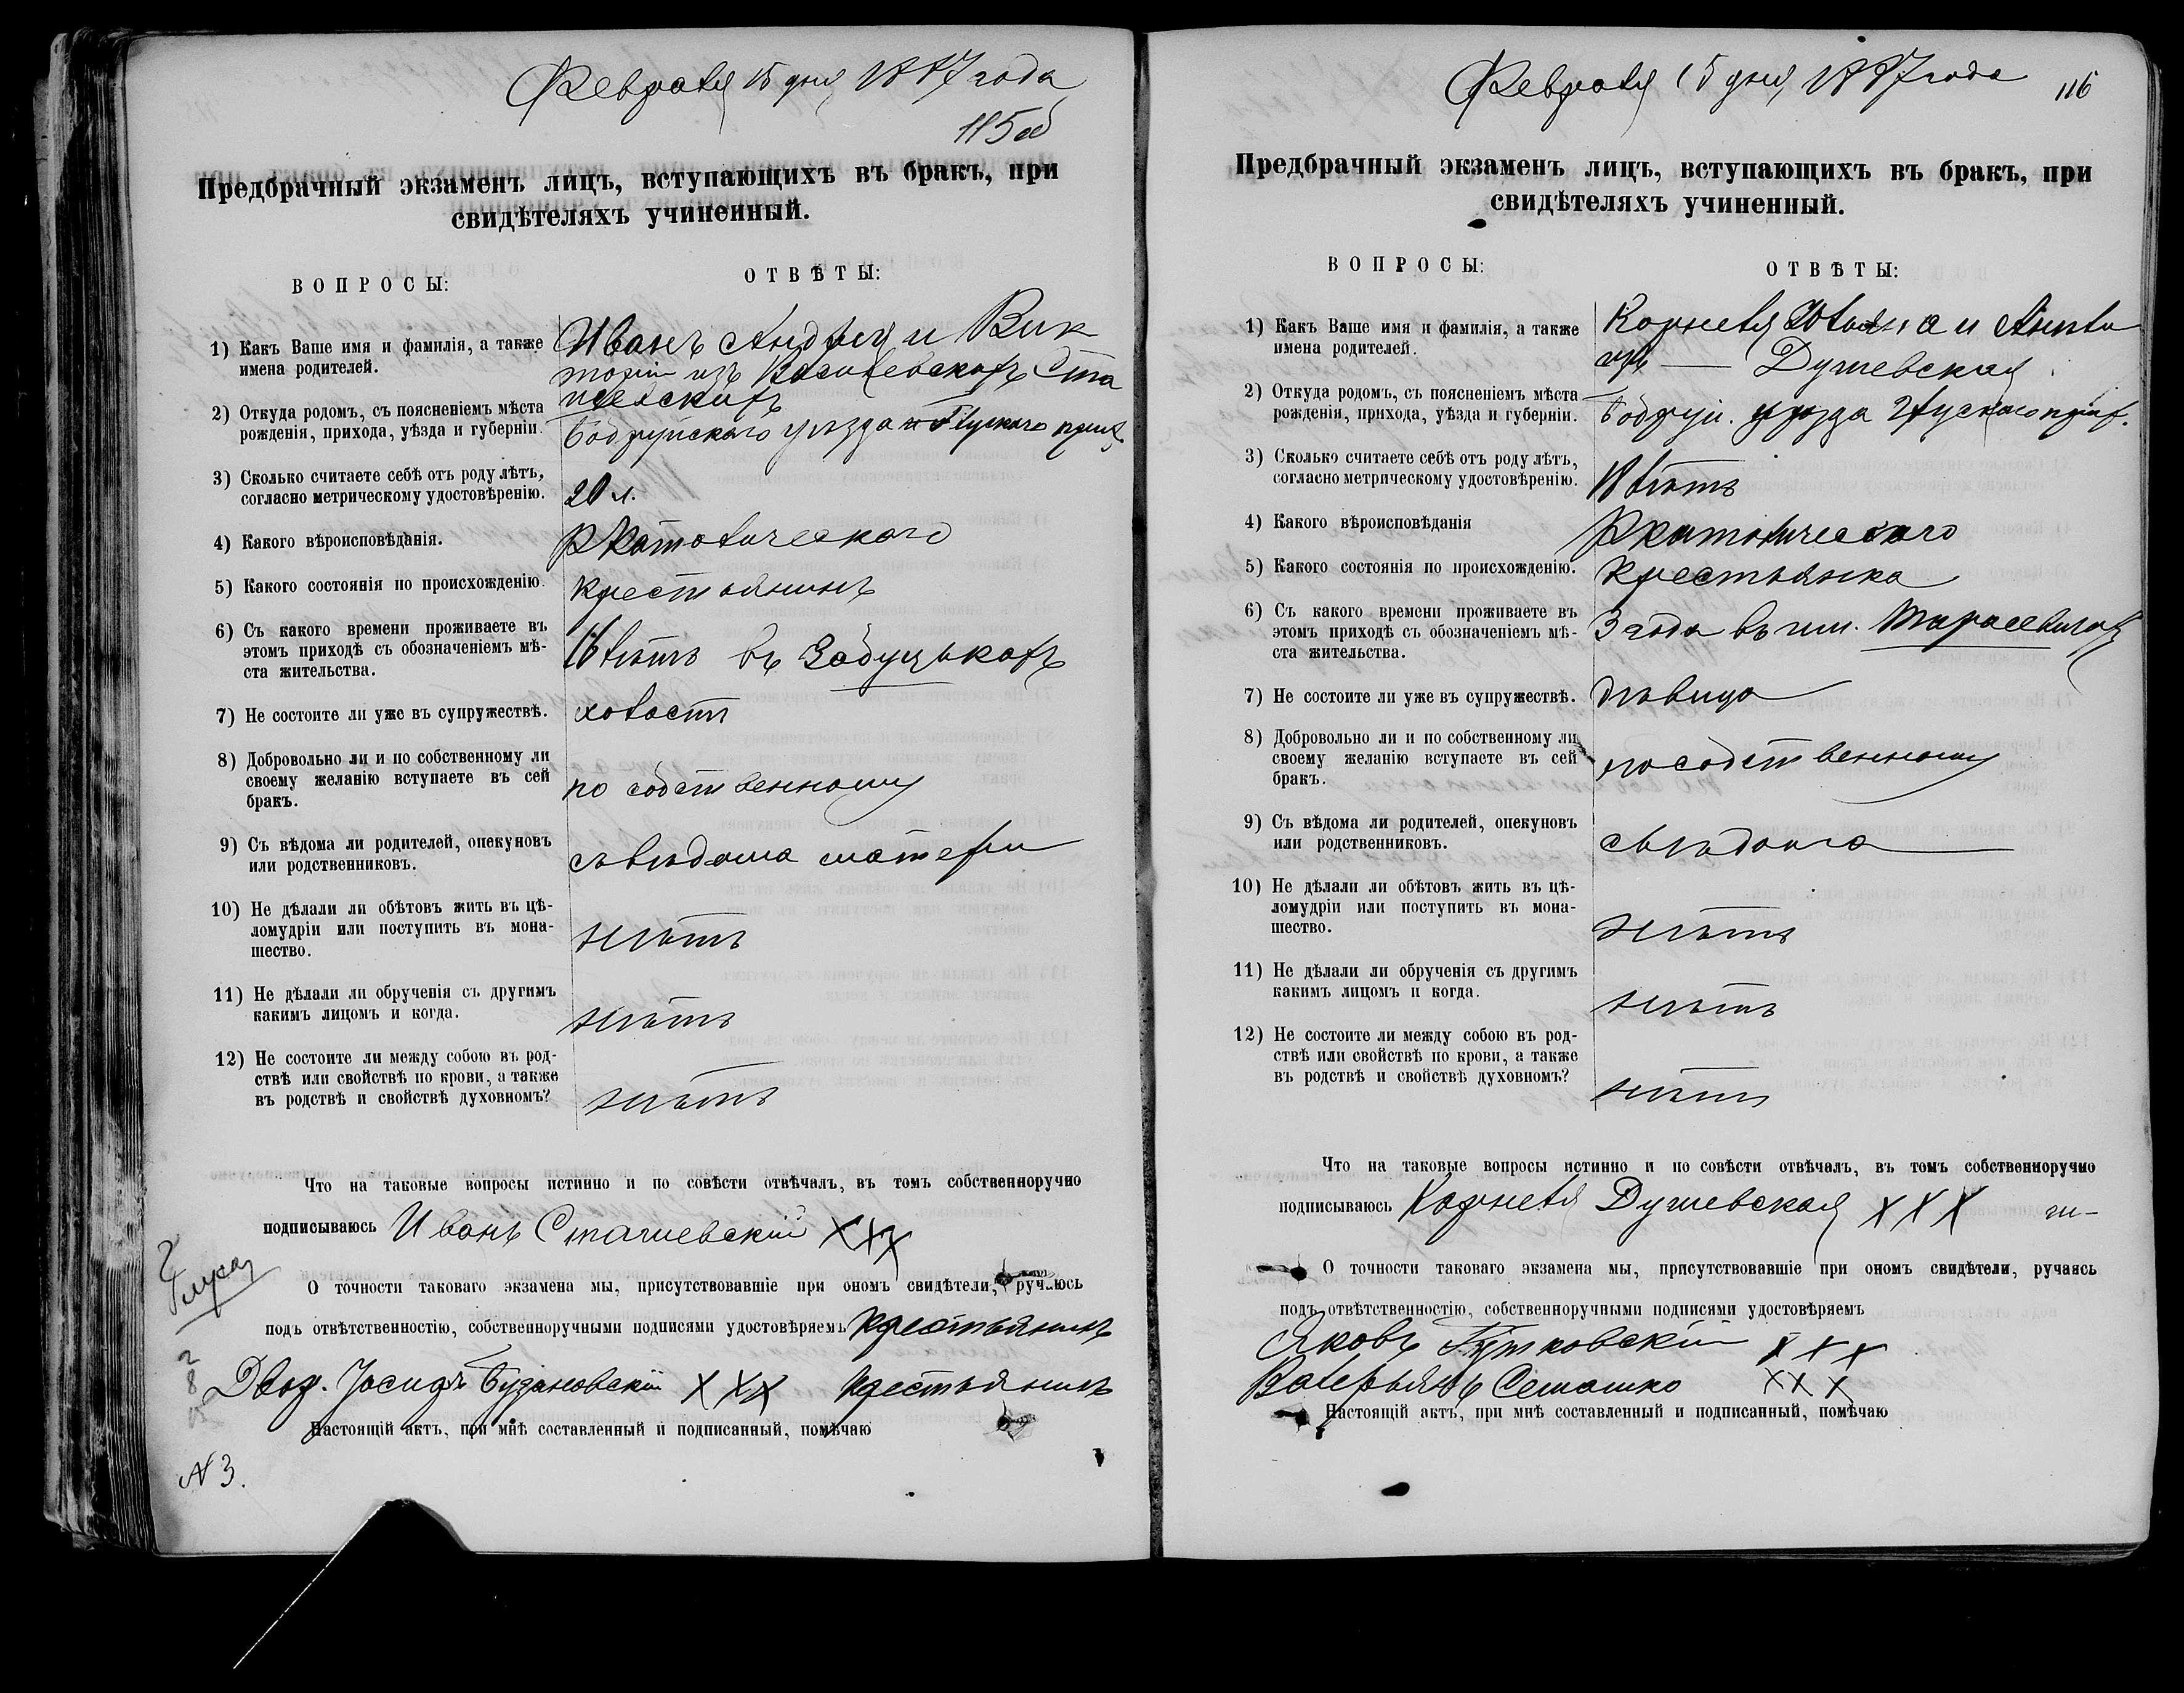 Февраля 15 дня 1887 года
115об
Предбрачный экзаменъ лицъ, вступающихъ въ бракъ, при
свидѣтеляхъ учиненный.
ВОПРОСЫ:
ОТВѢТЫ:
1) Какъ Ваше имя и фамилія, а также
имена родителей.
Иванъ Андрея и Вик
торіи изъ Василевскихъ Ста
2) Откуда родомъ, съ поясненіемъ мѣста
рожденія, прихода, уѣзда и губерніи.
Бобруйскаго уѣзда Глускаго
3) Сколько считаете себѣ отъ роду лѣтъ,
согласно метрическому удостовѣренію.
20 л.
4) Какого вѣроисповѣданія.
Р Католическаго
5) Какого состоянія по происхожденію.
Крестьянинъ
6) Съ какого времени проживаете въ
этомъ приходѣ съ обозначеніемъ мѣ-
ста жительства.
лѣтъ въ
7) Не состоите ли уже въ супружествѣ.
холостъ
8) Добровольно ли и по собственному ли
своему желанію вступаете въ сей
бракъ.
по собственному
9) Съ вѣдома ли родителей, опекуновъ
или родственниковъ.
съ вѣдома матери
10) Не дѣлали ли обѣтовъ жить въ цѣ-
ломудріи или поступить въ мона-
шество.
нѣтъ
11) Не дѣлали ли обрученія съ другимъ
какимъ лицомъ и когда.
нѣтъ
12) Не состоите ли между собою въ род-
ствѣ или свойствѣ по крови, а также
въ родствѣ и свойствѣ духовномъ?
нѣтъ
Что на таковые вопросы истинно и по совѣсти отвѣчалъ, въ томъ собственноручно
подписываюсь Иванъ Стачиевскій ХХХ
О точности таковаго экзамена мы, присутствовавшіе при ономъ свидѣтели, ручаюсь
подъ отвѣтственностію, собственноручными подписями удостовѣряемъ Крестьянинъ
Двор. Іосифъ ХХХ Крестьянинъ
Настоящій актъ, при мнѣ составленный и подписанный, помѣчаю
N 3.
Февраля 15 дня 1887 года
116
Предбрачный экзаменъ лицъ, вступающихъ въ бракъ, при
свидѣтеляхъ учиненный.
ВОПРОСЫ:
ОТВѢТЫ:
1) Какъ Ваше имя и фамилія, а также
имена родителей.
Корнеля Юліана и
Душевская
2) Откуда родомъ, съ поясненіемъ мѣста
рожденія, прихода, уѣзда и губерніи.
Бобруй. уѣзда Глускаго
3) Сколько считаете себѣ отъ роду лѣтъ,
согласно метрическому удостовѣренію.
18 лѣтъ
4) Какого вѣроисповѣданія
Р Католическаго
5) Какого состоянія по происхожденію.
Крестьянка
6) Съ какого времени проживаете въ
этомъ приходѣ съ обозначеніемъ мѣ-
ста жительства.
3 года въ им.
7) Не состоите ли уже въ супружествѣ.
дѣвица
8) Добровольно ли и по собственному ли
своему желанію вступаете въ сей
бракъ.
по собственному
9) Съ вѣдома ли родителей, опекуновъ
или родственниковъ.
съ вѣдома
10) Не дѣлали ли обѣтовъ жить въ цѣ-
ломудріи или поступить въ мона-
шество.
нѣтъ
11) Не дѣлали ли обрученія съ другимъ
какимъ лицомъ и когда.
нѣтъ
12) Не состоите ли между собою въ род-
ствѣ или свойствѣ по крови, а также
въ родствѣ и свойствѣ духовномъ?
нѣтъ
Что на таковые вопросы истинно и по совѣсти отвѣчалъ, въ томъ собственноручно
подписываюсь Корнеля Душевская ХХХ
О точности таковаго экзамена мы, присутствовавшіе при ономъ свидѣтели, ручаясь
подъ отвѣтственностію, собственноручными подписями удостовѣряемъ
Яковъ ХХХ
Валерьянъ Семашко ХХХ
Настоящій актъ, при мнѣ составленный и подписанный, помѣчаю